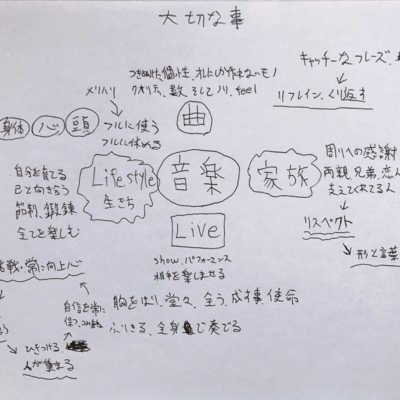 大切な事
キャッチーなフレーズ、
リフレイン、くり返す
メリハリ
つきぬけた個性、オレにしか作れないモノ
クオリティ、数、そしてノリ、feel
曲
身体
心
頭
フルに使う
フルに休める
自分を育てる
己と向き合う
節制、鍛錬
全てを楽しむ
Lifestyle
生きち
音楽
家族
周りへの感謝
両親、兄弟、恋人
支えてくれてる人
リスペクト
形と言葉
Live
show、パフォーマンス
相手を楽しませる
挑戦・常に向上心
自信を常に
胸をはり、堂々、全う、成す事、使命
ふりきる、全身で奏でる
ひきつける
人が集まる